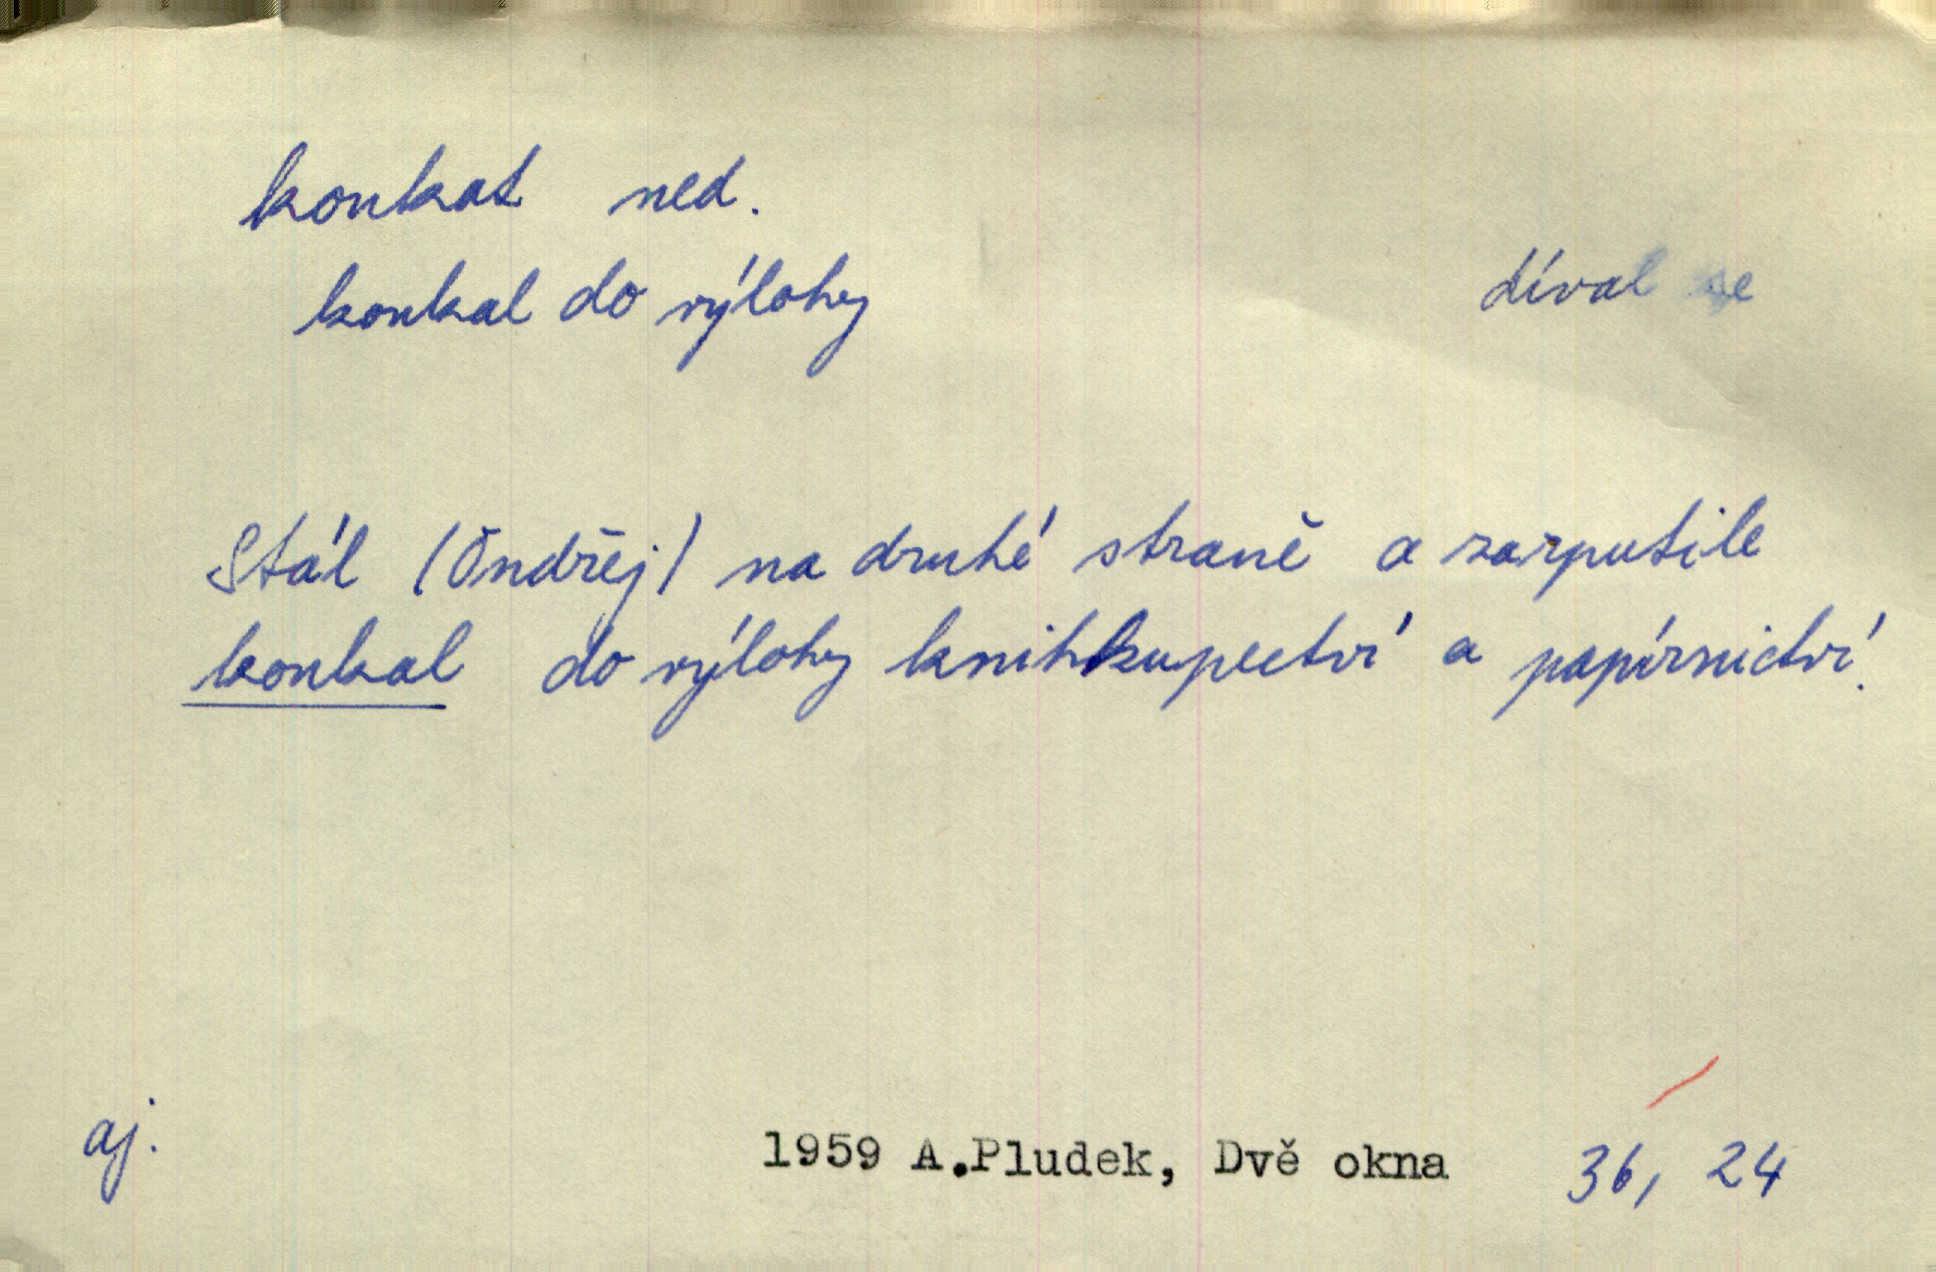 koukat ned.
koukal do výlohy
díval se
Stál (Ondřej) na druhé straně a zarputile
koukal do výlohy knihkupectví a papírnictví.
aj.
1959 A.Pludek, Dvě okna 36, 24